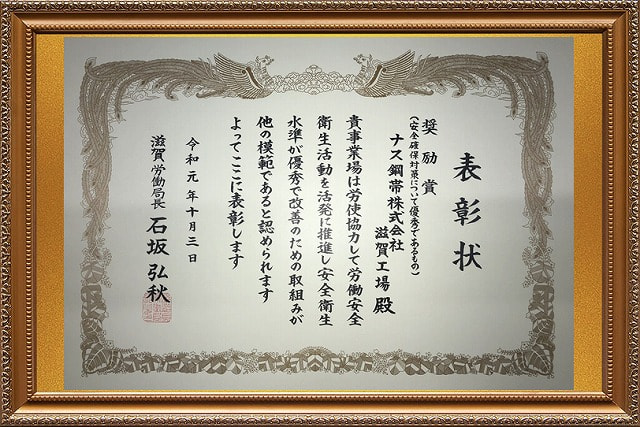 表彰状
奨励賞
(安全確保対策について優秀であるもの)
ナス鋼帯株式会社
滋賀工場 殿
貴事業場は労使協力して労働安全
衛生活動を活発に推進し安全衛生
水準が優秀で改善のための取組みが
他の模範であると認められます
よってここに表彰します
令和元年十月三日
滋賀労働局長 石坂弘秋